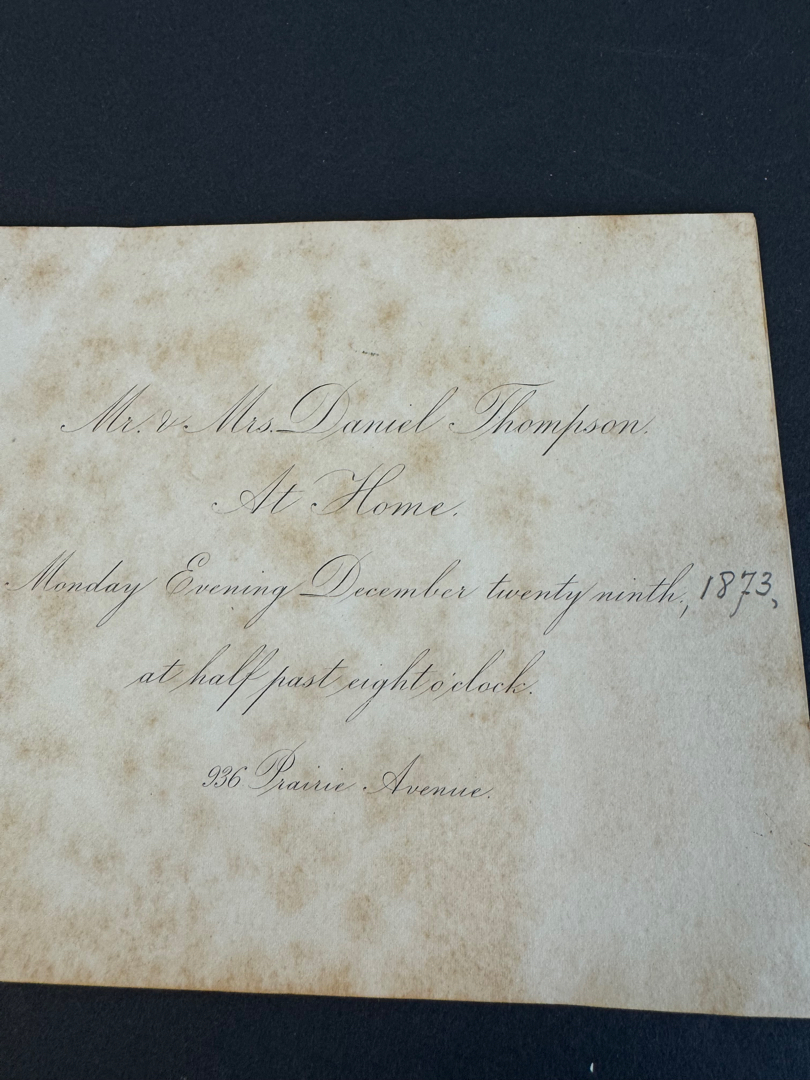 Mr. & Mrs. Daniel Thompson.
At Home.
Monday Evening December twenty ninth, 1873,
at half past eight o'clock.
936 Prairie Avenue.